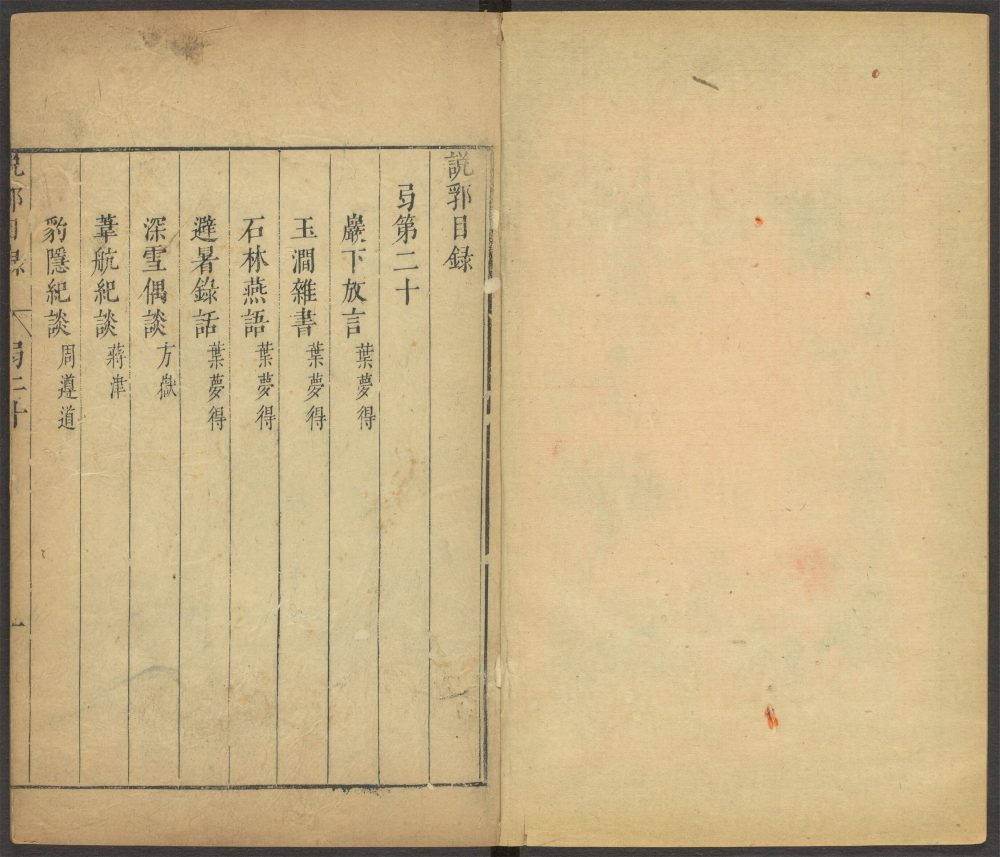 說郛目錄
弓第二十
巖下放言 葉夢得
玉澗雜書 葉夢得
石林燕語 葉夢得
避暑錄話 葉夢得
深雪偶談 方嶽
葦航紀談 蔣津
豹隱紀談 周遵道
說郛目錄 弓二十 一